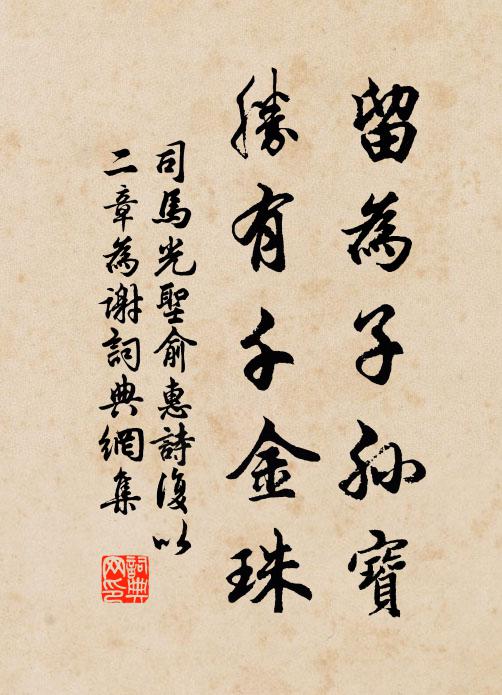 留為子孫寶
勝有千金珠
司馬光聖俞惠詩復以
二章為謝詞典網集
詞典網印